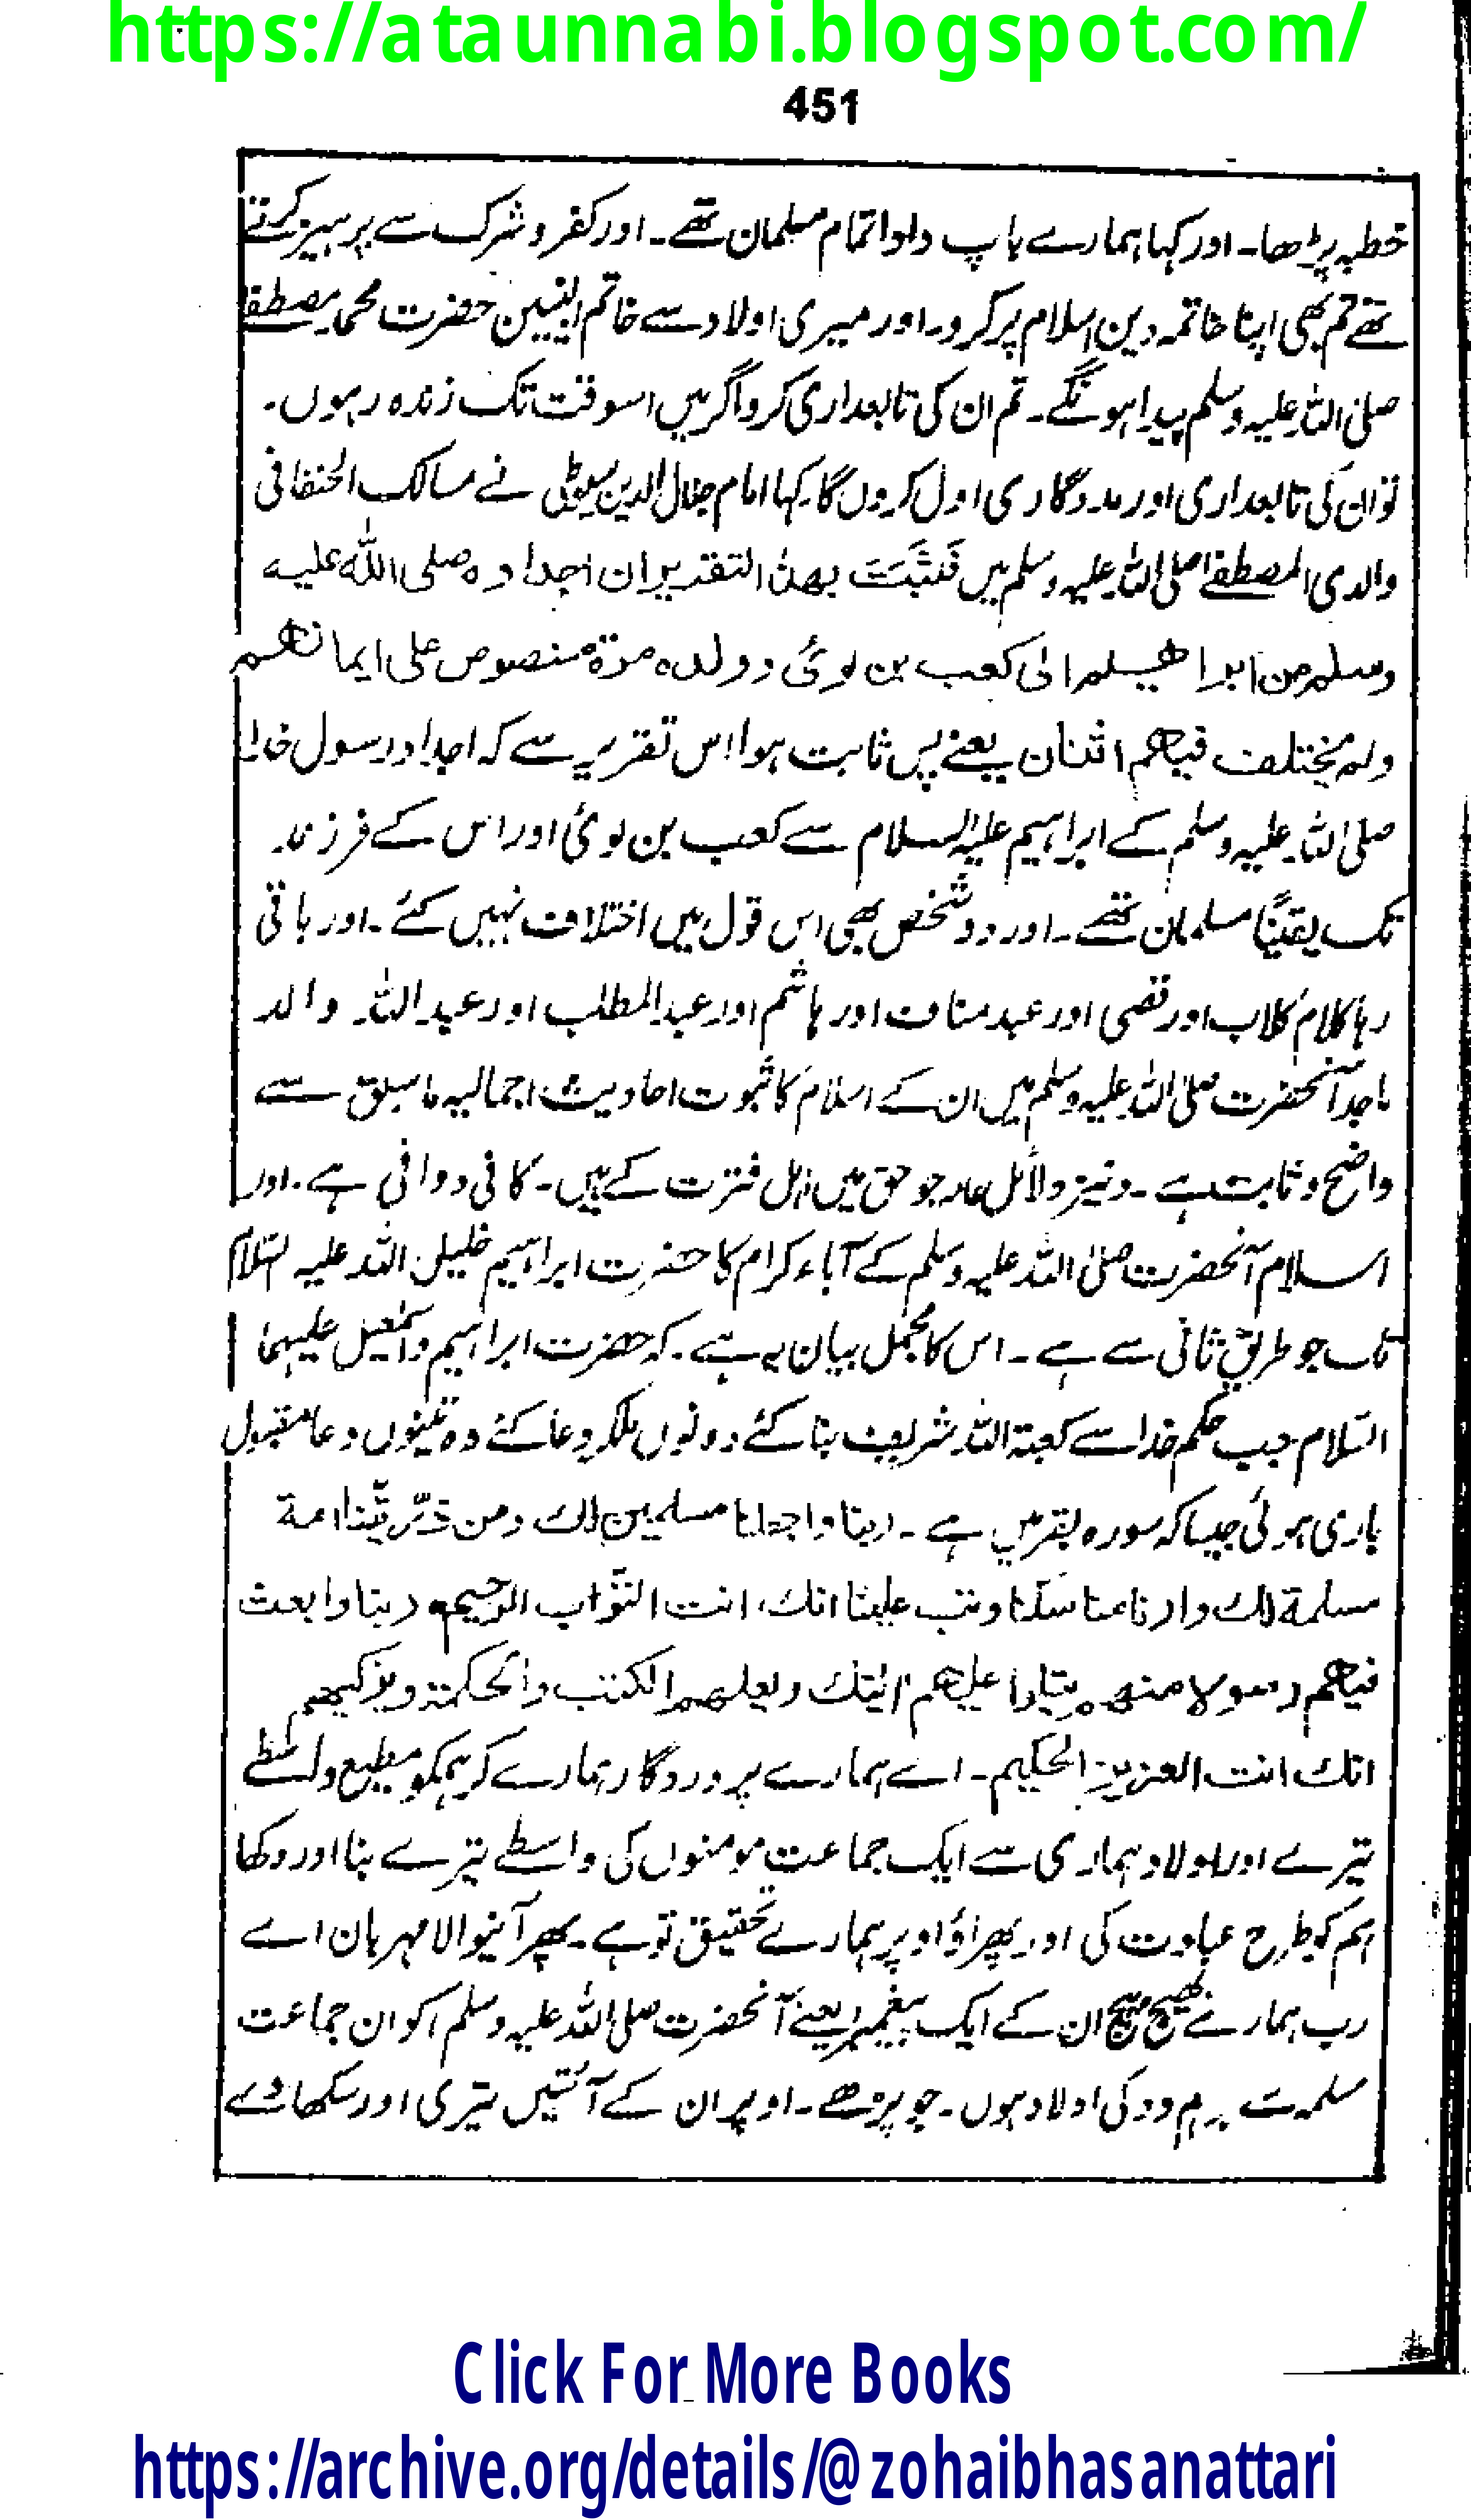 https://ataunnabi.blogspot.com/
451
خطبہ پڑھا۔ اور کہا ہمارے باپ دادا تمام مسلمان تھے۔ اور کفر و شرک سے پرہیز کرتے
تھے تم بھی اپنا خاتمہ دین اسلام پر کرو۔ اور میری اولاد سے خاتم النبیین حضرت محمد مصطفےٰ
صلی اللہ علیہ وسلم پیدا ہونگے۔ تم ان کی تابعداری کرو اگر میں اسوقت تک زندہ رہوں۔
تو ان کی تابعداری اور مددگاری اول کروں گا۔ کہا امام جلال الدین سیوطی نے مسالک الحنفا فی
والدی المصطفےٰ صلی اللہ علیہ وسلم میں فَثَبَتَ بهذا التقدير ان اجداده صلى الله عليه
وسلم من ابراهيم الى كعب بن لوئی و ولده مرة منصوص على ايمانهم
ولم يختلف فيهم اثنان یعنے پس ثابت ہوا اس تقریر سے کہ اجداد رسول خدا
صلی اللہ علیہ وسلم کے ابراہیم علیہ السلام سے کعب بن لوئی اور اس کے فرزند
تک یقینًا مسلمان تھے۔ اور دو شخص بھی اس قول میں اختلاف نہیں کئے۔ اور باقی
رہا کلام کلاب اور قصی اور عبد مناف اور ہاشم اور عبد المطلب اور عبد اللہ والد
ماجد آنحضرت صلی اللہ علیہ وسلم میں ان کے اسلام کا ثبوت احادیث اجمالیہ ما سبق سے
واضح و ثابت ہے۔ و نیز دلائل عامہ جو حق میں اہل فترت کے ہیں۔ کافی و وافی ہے۔ اور
اسلام آنحضرت صلی اللہ علیہ وسلم کے آباء کرام کا حضرت ابراہیم خلیل اللہ علیہ السلام
تک جو طریق ثانی سے ہے۔ اس کا مجمل بیان یہ ہے۔ کہ حضرت ابراہیم و اسمٰعیل علیہما
السّلام جب حکم خدا سے کعبۃ اللہ شریف بنا کئے دونوں ملکر دعا کئے وہ تینوں دعا مقبول
باری ہوئی جیسا کہ سورہ بقر میں ہے۔ ربنا واجعلنا مسلمین لك ومن ذرّيّتنا امة
مسلمة لك وارنا مناسكنا وتب علينا انك انت التوّاب الرحيم ه ربنا وابعث
فيهم رسولا منهم يتلوا عليهم اٰيٰتك ويعلمهم الكتٰب والحكمة ويزكيهم
انك انت العزيز الحكيم۔ اے ہمارے پروردگار ہمارے کر ہمکو مطیع واسطے
تیرے اور اولاد ہماری سے ایک جماعت مومنوں کی واسطے تیرے بنا اور دکھا
ہم کو طرح عبادت کی اور پھر آؤ اوپر ہمارے تحقیق تو ہے۔ پھر آنیوالا مہربان اے
رب ہمارے بھیج بیچ ان کے ایک پیغمبر یعنے آنحضرت صلی اللہ علیہ وسلم کو ان جماعت
مسلمہ سے ہم دو کی اولاد ہوں۔ جو پڑھے۔ اوپر ان کے آئتیں تیری اور سکھاوے
Click For More Books
https://archive.org/details/@zohaibhasanattari